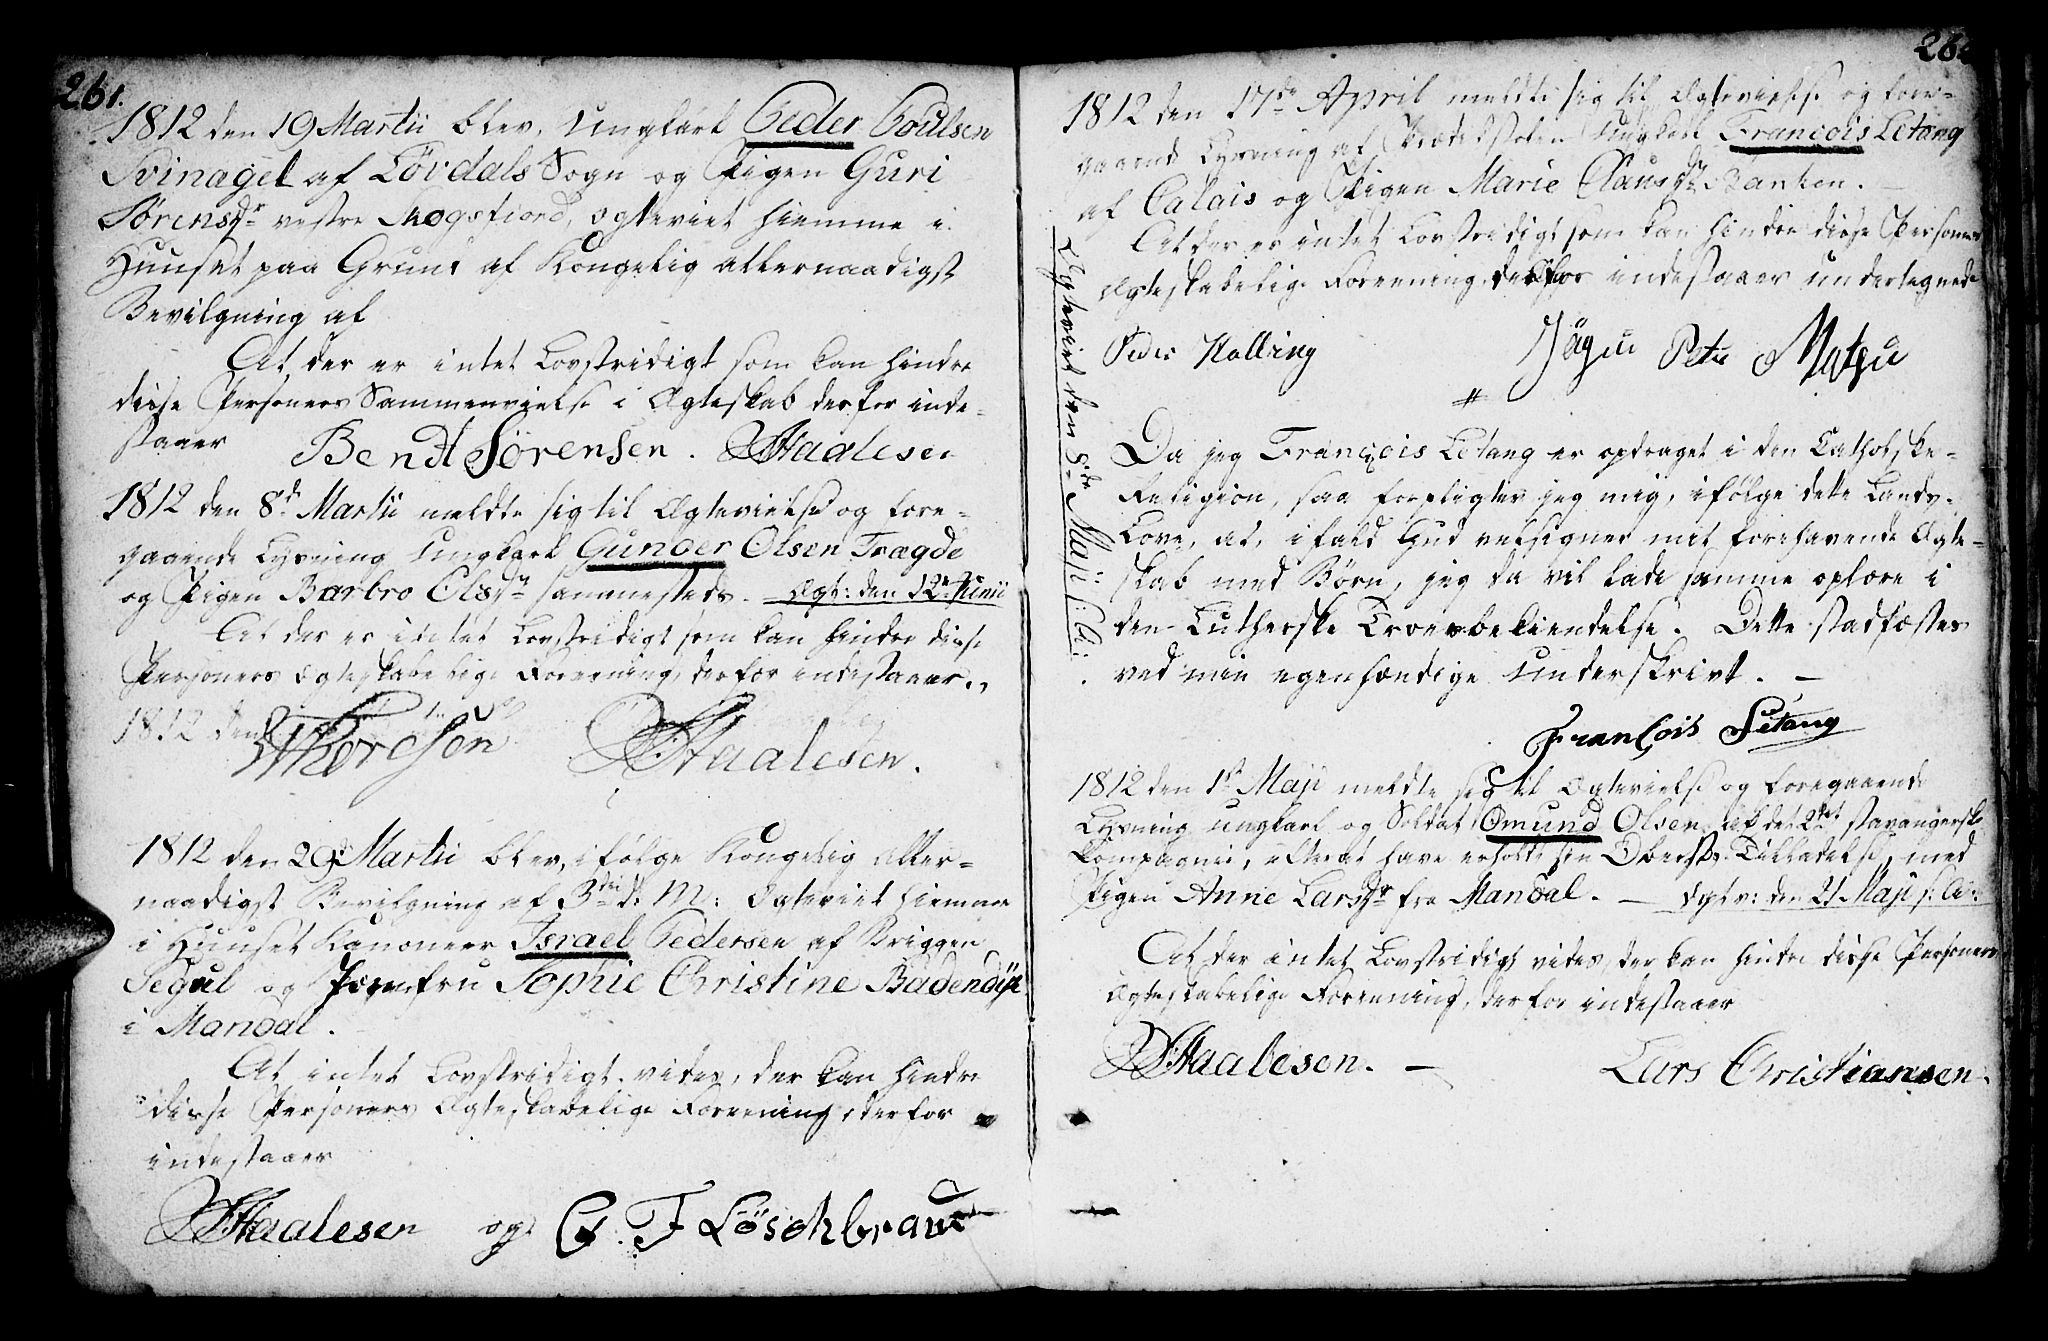 261.
1812 den 19 Martii blev, Ungkarl Peder Poulsen
Svinagel af Løvdals Sogn og Pigen Guri
Sørensdr vestre Skogsfiord, ægteviet hiemme i
Huuset paa Grund af Kongelig allernaadigst
Bevilgning af
At der er intet Lovstridigt som kan hindre
disse Personers Sammenvielse i Ægteskab derfor inde-
staaer Bendt Sørensen. Haalesen
1812 den 8d Martii meldte sig til Ægtevielse og fore-
gaaende Lysning Ungkarl Gunder Olsen Trægde
og Pigen Barbro Olsdr sammesteds. Ægt: den 12 Junii
At der er intet Lovstridigt som kan hindre disse
Personers ægteskabelige Foreening, derfor indestaaer.,
1812 den
Thoresen Haalesen.
1812 den 29d Martii blev, ifølge Kongelig aller-
naadigst Bevilgning af 3die d: M: Ægteviet hiemme
i Huuset Kanoneer Israel Pedersen af Briggen
Segul og Jomfru Sophie Christine Badendijk
i Mandal.
At intet Lovstridigt vides, der kan hindre
disse Personers Ægteskabelige Foreening, derfor
indestaaer
Haalesen og C. F Löschbrandt
1812 den 17de April meldte sig til Ægtevielse og fore-
gaaende Lysning af Prædikestolen Ungkarl Francois Letang
af Calais og Pigen Marie Clausdr Banken.
At der er intet Lovstridigt som kan hindre disse Personers
Ægteskabelige Foreening, derfor indestaaer undertegnede
Peder Halling Peter
#
Da jeg François Letang er opdraget i den Catholske
Religion, saa forpligter jeg mig, ifølge dette Lands
Love, at, ifald Gud velsigner mit forehavende Ægte-
skab med Børn, jeg da vil lade samme oplære i
den Lutherske Troesbekiendelse. Dette stadfæstes
ved min egenhændige Underskrivt.
François Letang
Ægteviet den 8de Maji
1812 den 1st Maji meldte sig til Ægtevielse og foregaaende
Lysning Ungkarl og Soldat Omund Olsen af det 2det stavangerske
Compagnie, efter at have erholdt sin Oberstes Tilladelse, med
Pigen Anne Larsdr fra Mandal. Ægtv: den 21 Maji
At der intet Lovstridigt vides der kan hindre disse Personers
Ægteskabelige Foreening, derfor indestaaer
Haalesen. Lars Christiansen.